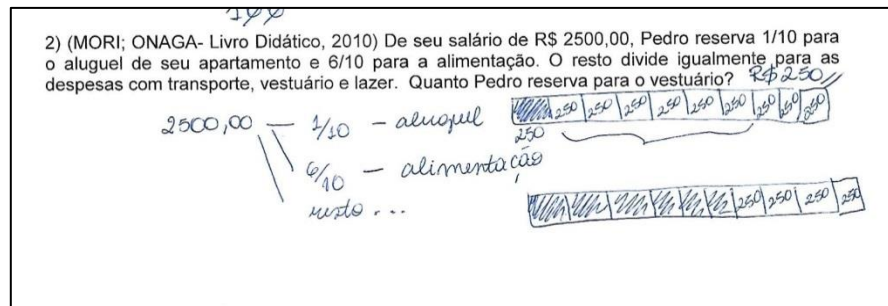 144
2) (MORI; ONAGA- Livro Didático, 2010) De seu salário de R$ 2500,00, Pedro reserva 1/10 para
o aluguel de seu apartamento e 6/10 para a alimentação. O resto divide igualmente para as
despesas com transporte, vestuário e lazer. Quanto Pedro reserva para o vestuário? R$250
2500,00 — 1/10 - aluguel
250 250 250 250 250 250 250 250 250
250
6/10 — alimentação
resto ...
250 250 250 250